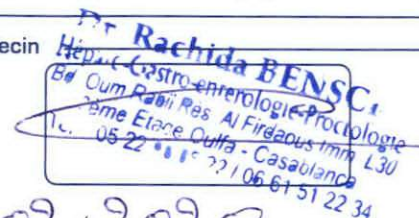 ecin
Dr Rachida BENSC
Hépato-Gastro-enrerologie-Proctologie
Bd Oum Rabii Res Al Firdaous Imm L30
2ème Etage Oulfa - Casablanca
05 22 22 / 06 61 51 22 34